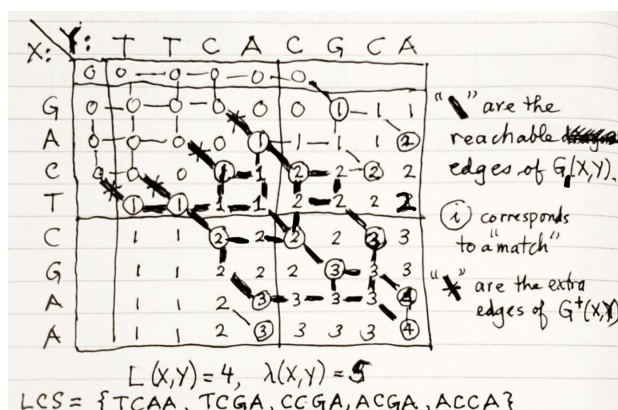 X: Y: T T C A C G C A
0 0 0 0 0 0
G 0 0 0 0 0 0 1 1 1
A 0 0 0 0 1 1 1 1 2
C 0 0 0 1 1 2 2 2 2
T 1 1 1 1 2 2 2 2
C 1 1 2 2 2 2 3 3
G 1 1 2 2 2 3 3 3
A 1 1 2 3 3 3 3 4
A 1 1 2 3 3 3 3 4
"\" are the
reachable
edges of G(X,Y).
i corresponds
to a "match"
" " are the extra
edges of G⁺(X,Y)
L(X,Y)=4, λ(X,Y)=5
LCS = {TCAA, TCGA, CCGA, ACGA, ACCA}